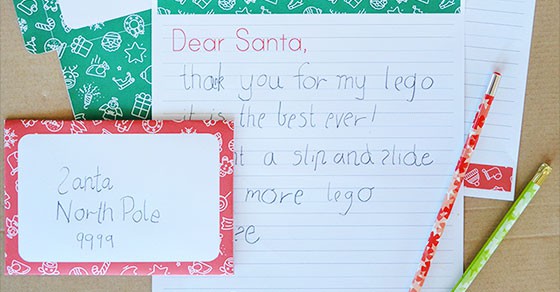 Dear Santa,
thank you for my lego
it is the best ever!
a slip and slide
more lego
Santa
North Pole
9999